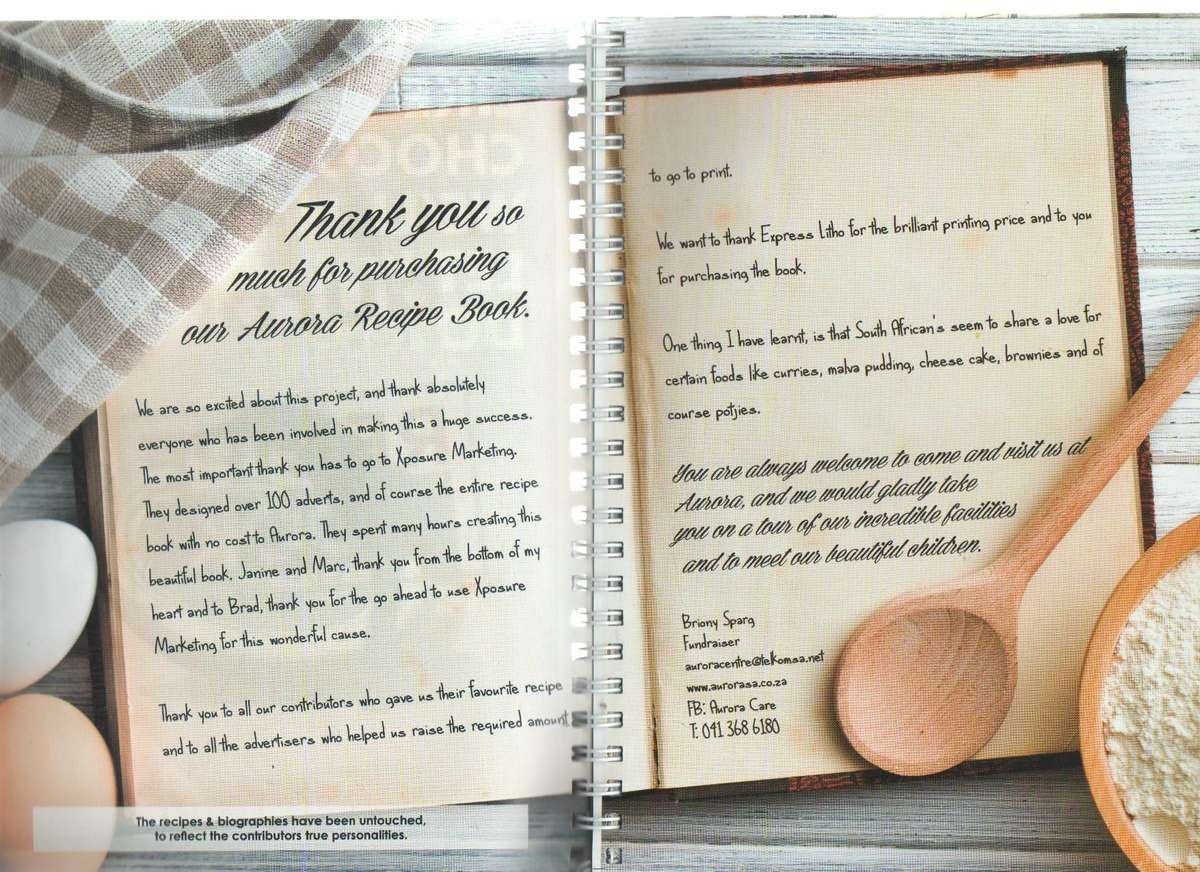 Thank you so
much for purchasing
our Aurora Recipe Book.
We are so excited about this project, and thank absolutely
everyone who has been involved in making this a huge success.
The most important thank you has to go to Xposure Marketing.
They designed over 100 adverts, and of course the entire recipe
book with no cost to Aurora. They spent many hours creating this
beautiful book. Janine and Marc, thank you from the bottom of my
heart and to Brad, thank you for the go ahead to use Xposure
Marketing for this wonderful cause.
Thank you to all our contributors who gave us their favourite recipe
and to all the advertisers who helped us raise the required amount
The recipes & biographies have been untouched,
to reflect the contributors true personalities.
to go to print.
We want to thank Express Litho for the brilliant printing price and to you
for purchasing the book.
One thing I have learnt, is that South African's seem to share a love for
certain foods like curries, malva pudding, cheese cake, brownies and of
course potjies.
You are always welcome to come and visit us at
Aurora, and we would gladly take
you on a tour of our incredible facilities
and to meet our beautiful children.
Briony Sparg
Fundraiser
auroracentre@telkomsa.net
www.aurorasa.co.za
FB: Aurora Care
T: 041 368 6180